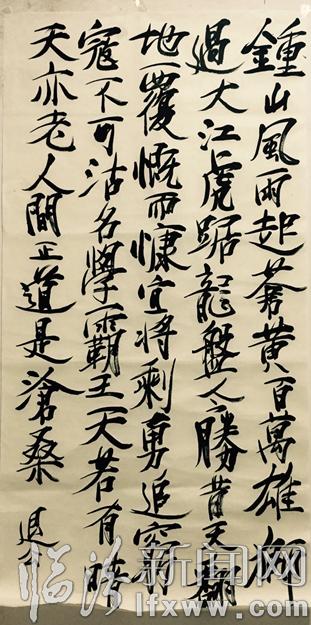 鍾山風雨起蒼黃百萬雄師
過大江虎踞龍盤今勝昔天翻
地覆慨而慷宜將剩勇追窮
寇不可沽名學霸王天若有情
天亦老人間正道是滄桑
退
临汾新闻网
lfxww.com